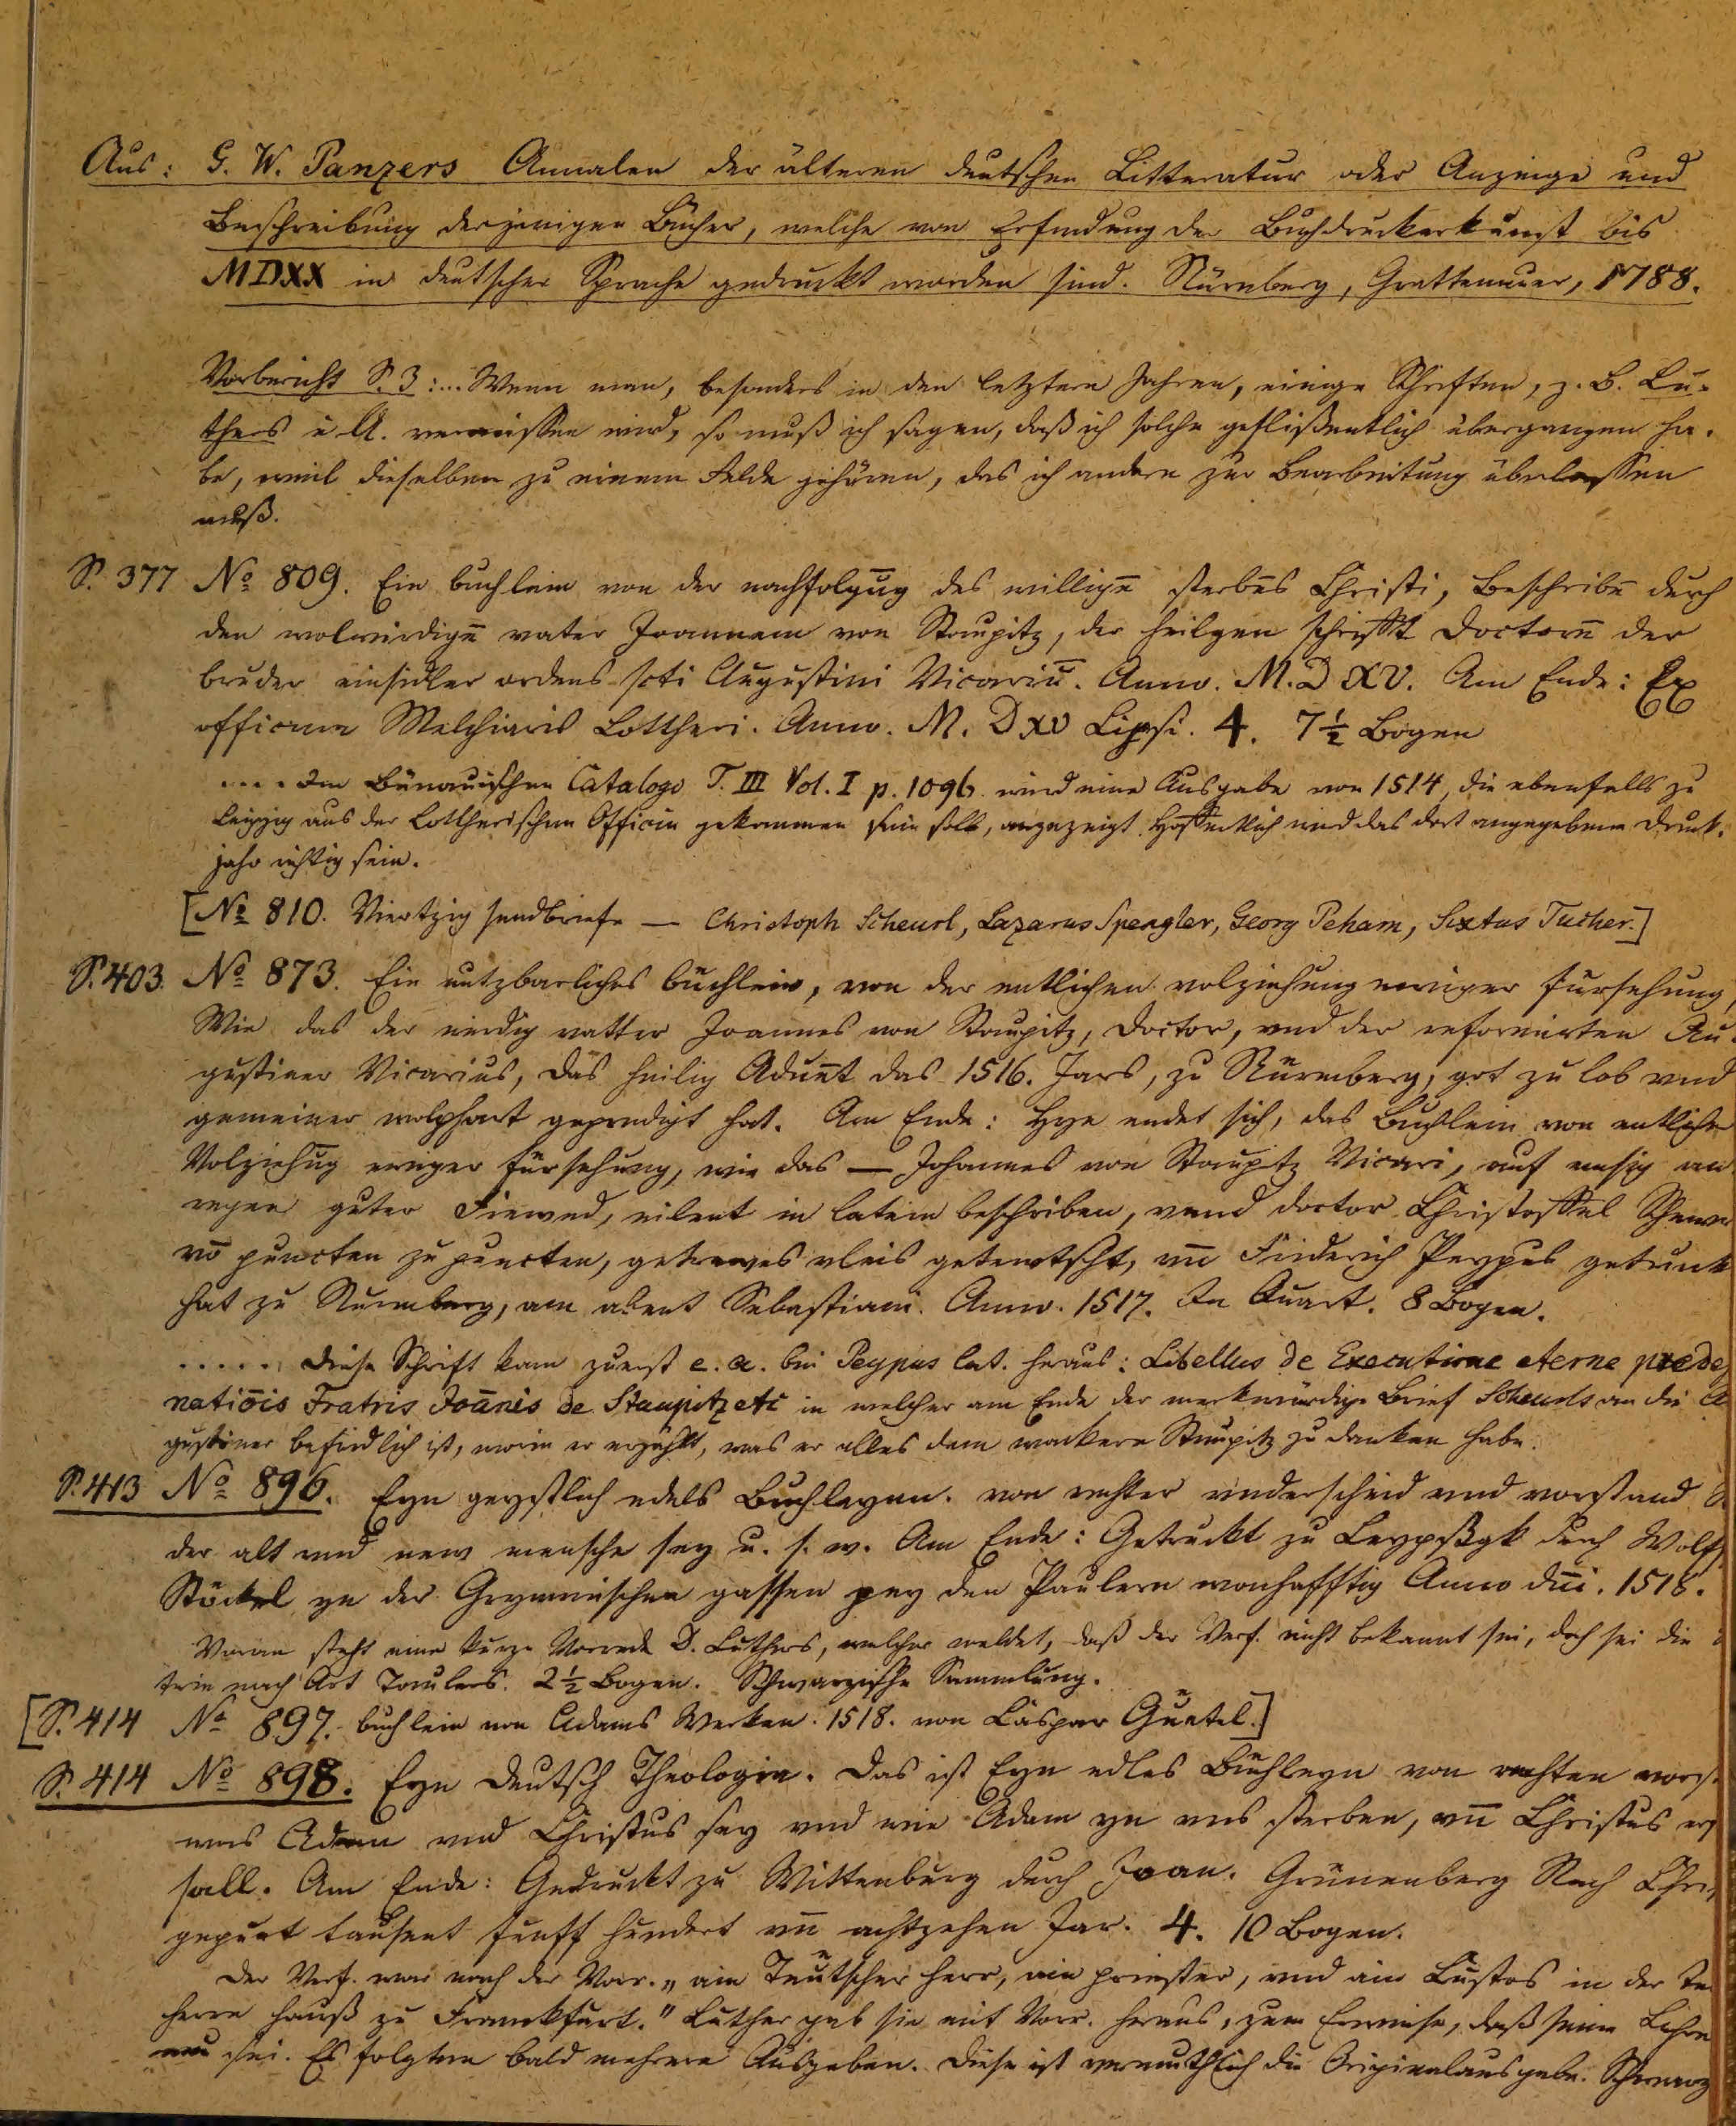 Aus: G. W. Panzers Annalen der älteren deutschen Litteratur oder Anzeige und
Beschreibung derjenigen Bücher, welche von Erfindung der Buchdruckerkunst bis
MDXX in deutscher Sprache gedruckt worden sind. Nürnberg, Grattenauer, 1788.
Vorbericht S. 3: ... Wenn man, besonders in den letztern Jahren, einige Schriften, z. B. Lu-
thers u. A. vermissen wird, so muß ich sagen, daß ich solche geflißentlich übergangen ha-
be, weil dieselben zu einem Felde gehören, das ich andern zur Bearbeitung überlassen
muß.
S. 377 No 809. Ein buchlein von der nachfolgūg des willigē sterbēs Christi, Beschribē durch
den wolwirdigē vater Joannem von Staupitz, der heiligen schrifft Doctorē der
bruder einsidler ordens scti Augustini Vicariū. Anno. M.D XV. Am Ende: Ex
officina Melchiaris Lottheri. Anno. M. Dxv Lipsi. 4. 7½ Bogen
.... Im Bünauischen Catalogo T. III Vol. I p. 1096. wird eine Ausgabe von 1514, die ebenfalls zu
Leipzig aus der Lottherischen Officin gekommen sein soll, angezeigt. Hoffentlich wird das dort angegebene Druck-
jahr richtig sein.
[No 810. Viertzig sendbriefe — Christoph Scheurl, Lazarus Spengler, Georg Peham, Sixtus Tucher.]
S. 403. No 873. Ein nutzbarliches büchlein, von der entlichen volziehung ewiger fürsehung,
Wie das der wirdig vatter Joannes von Staupitz, Doctor, vnd der reformirten Au-
gustiner Vicarius, Das heilig Aduēt das 1516. Jars, zu Nurmberg, got zu lob vnd
gemeiner wolphart gepredigt hat. Am Ende: Hye endet sich, das Buchlein von entlicher
Volziehūg ewiger fürsehung, wie das — Johannes von Staupitz Vicari, auf embsig an
regen guter Firewnd, eilent in latein beschriben, vnnd doctor Christoffel Schewr
vō puncten zu puncten, getrewes vleis getewtscht, vn̄ Friderich Peypus getruck
hat zu Nurmberg, am abent Sebastiani. Anno. 1517. In Quart. 8 Bogen.
..... Diese Schrift kam zuerst e. a. bei Peypus lat. heraus: Libellus de Executione eterne prede
natiōis Fratris Joānis de Staupitz etc in welcher am Ende der merkwürdige Brief Scheurls an die
gustiner befindlich ist, worin er erzählt, was er alles dem wackern Staupitz zu danken habe.
S. 413 No 896. Eyn geystlich edels Buchleynn. von rechter vnderscheid vnd vorstand
der alt vnd new mensche sey u. s. w. Am Ende: Getruckt zu Leyppßgk durch Wolff
Stöckel yn der Grymmischen gassen pey den Paulern wonhafftig Anno dn̄i. 1518.
Voran steht eine kurze Vorrede D. Luthers, welcher meldet, daß der Verf. nicht bekannt sei, doch sei die
trin nach Art Taulers. 2½ Bogen. Schwarzische Sammlung.
[S. 414 No 897. buchlein von Adams Werken. 1518. von Caspar Guetel.]
S. 414 No 898. Eyn deutsch Theologia. Das ist Eyn edles Buchleyn von rechten vorst
was Adam vnd Christus sey vnd wie Adam yn uns sterben, vn̄ Christus ers
sall. Am Ende: Gedruckt zu Wittenburg durch Joan. Grünenberg Nach Chri
gepurt tausent funff hundert vn̄ achtzehen Jar. 4. 10 Bogen.
Der Verf. war nach der Vorr. „ain Teutscher herr, ain priester, vnd ain Custos in der
herrn hauß zu Franckfurt." Luther gab sie mit Vorr. heraus, zum Erweise, daß seine Lehre
neu sei. Es folgten bald mehrere Ausgaben. Diese ist vermuthlich die Originalausgabe. Schwarz